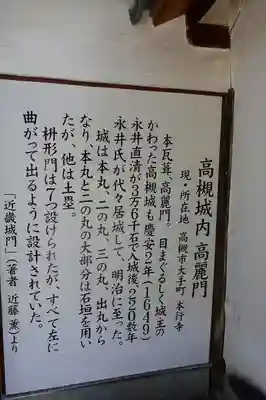 高槻城内 高麗門
現・所在地 高槻市大手町 本行寺
本瓦葺、高麗門。目まぐるしく城主の
かわった高槻城も慶安2年(1649)
永井直清が3万6千石で入城後、250数年
永井氏が代々居城して、明治に至った。
城は本丸、二の丸、三の丸、出丸から
なり、本丸と二の丸の大部分は石垣を用い
たが、他は土塁。
枡形門は7つ設けられたが、すべて左に
曲がって出るように設計されていた。
「近畿城門」(著者 近藤 薫)より